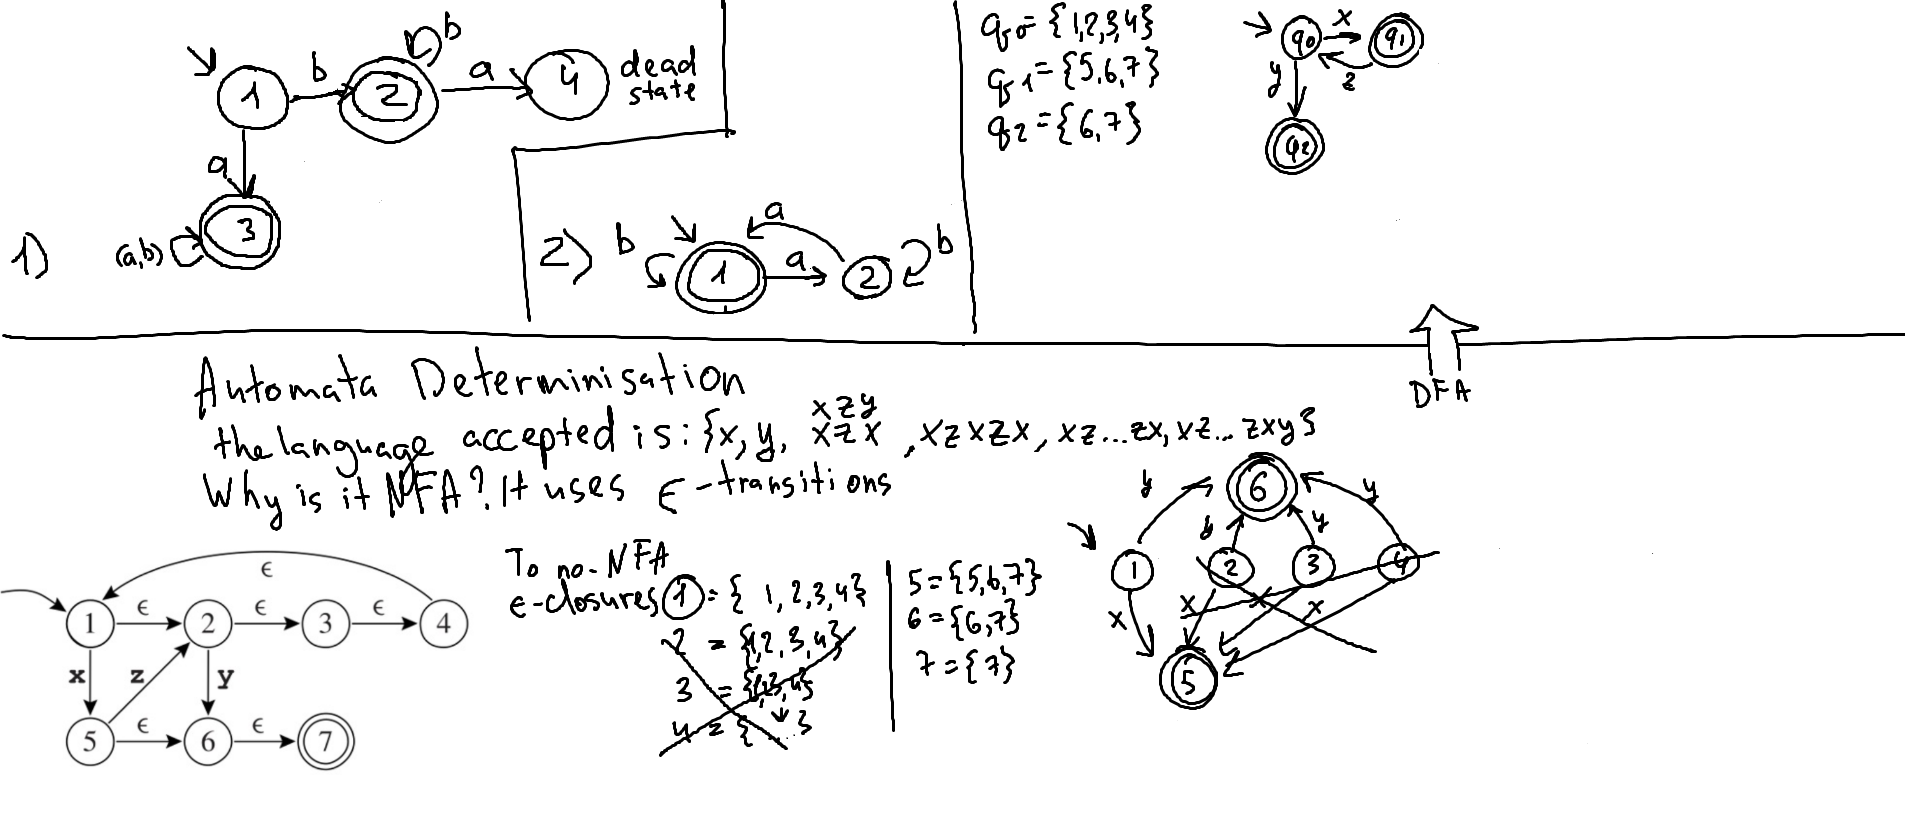 1)
1
b
2
b
a
4
dead
state
a
3
(a,b)
2)
b
1
a
a
2
b
q0 = {1,2,3,4}
q1 = {5,6,7}
q2 = {6,7}
q0
x
q1
z
y
q2
DFA
Automata Determinisation
xzy
the language accepted is: {x, y, xzx, xzxzx, xz...zx, xz... zxy}
Why is it NFA? It uses ϵ-transitions
ϵ
1 ϵ 2 ϵ 3 ϵ 4
x z y
5 ϵ 6 ϵ 7
To no-NFA
ϵ-closures 1 = { 1,2,3,4}
2 = {1,2,3,4}
3 = {1,2,3,4}
4 = { ...}
5 = {5,6,7}
6 = {6,7}
7 = {7}
6
y y y y
1 2 3 4
x x x x
5